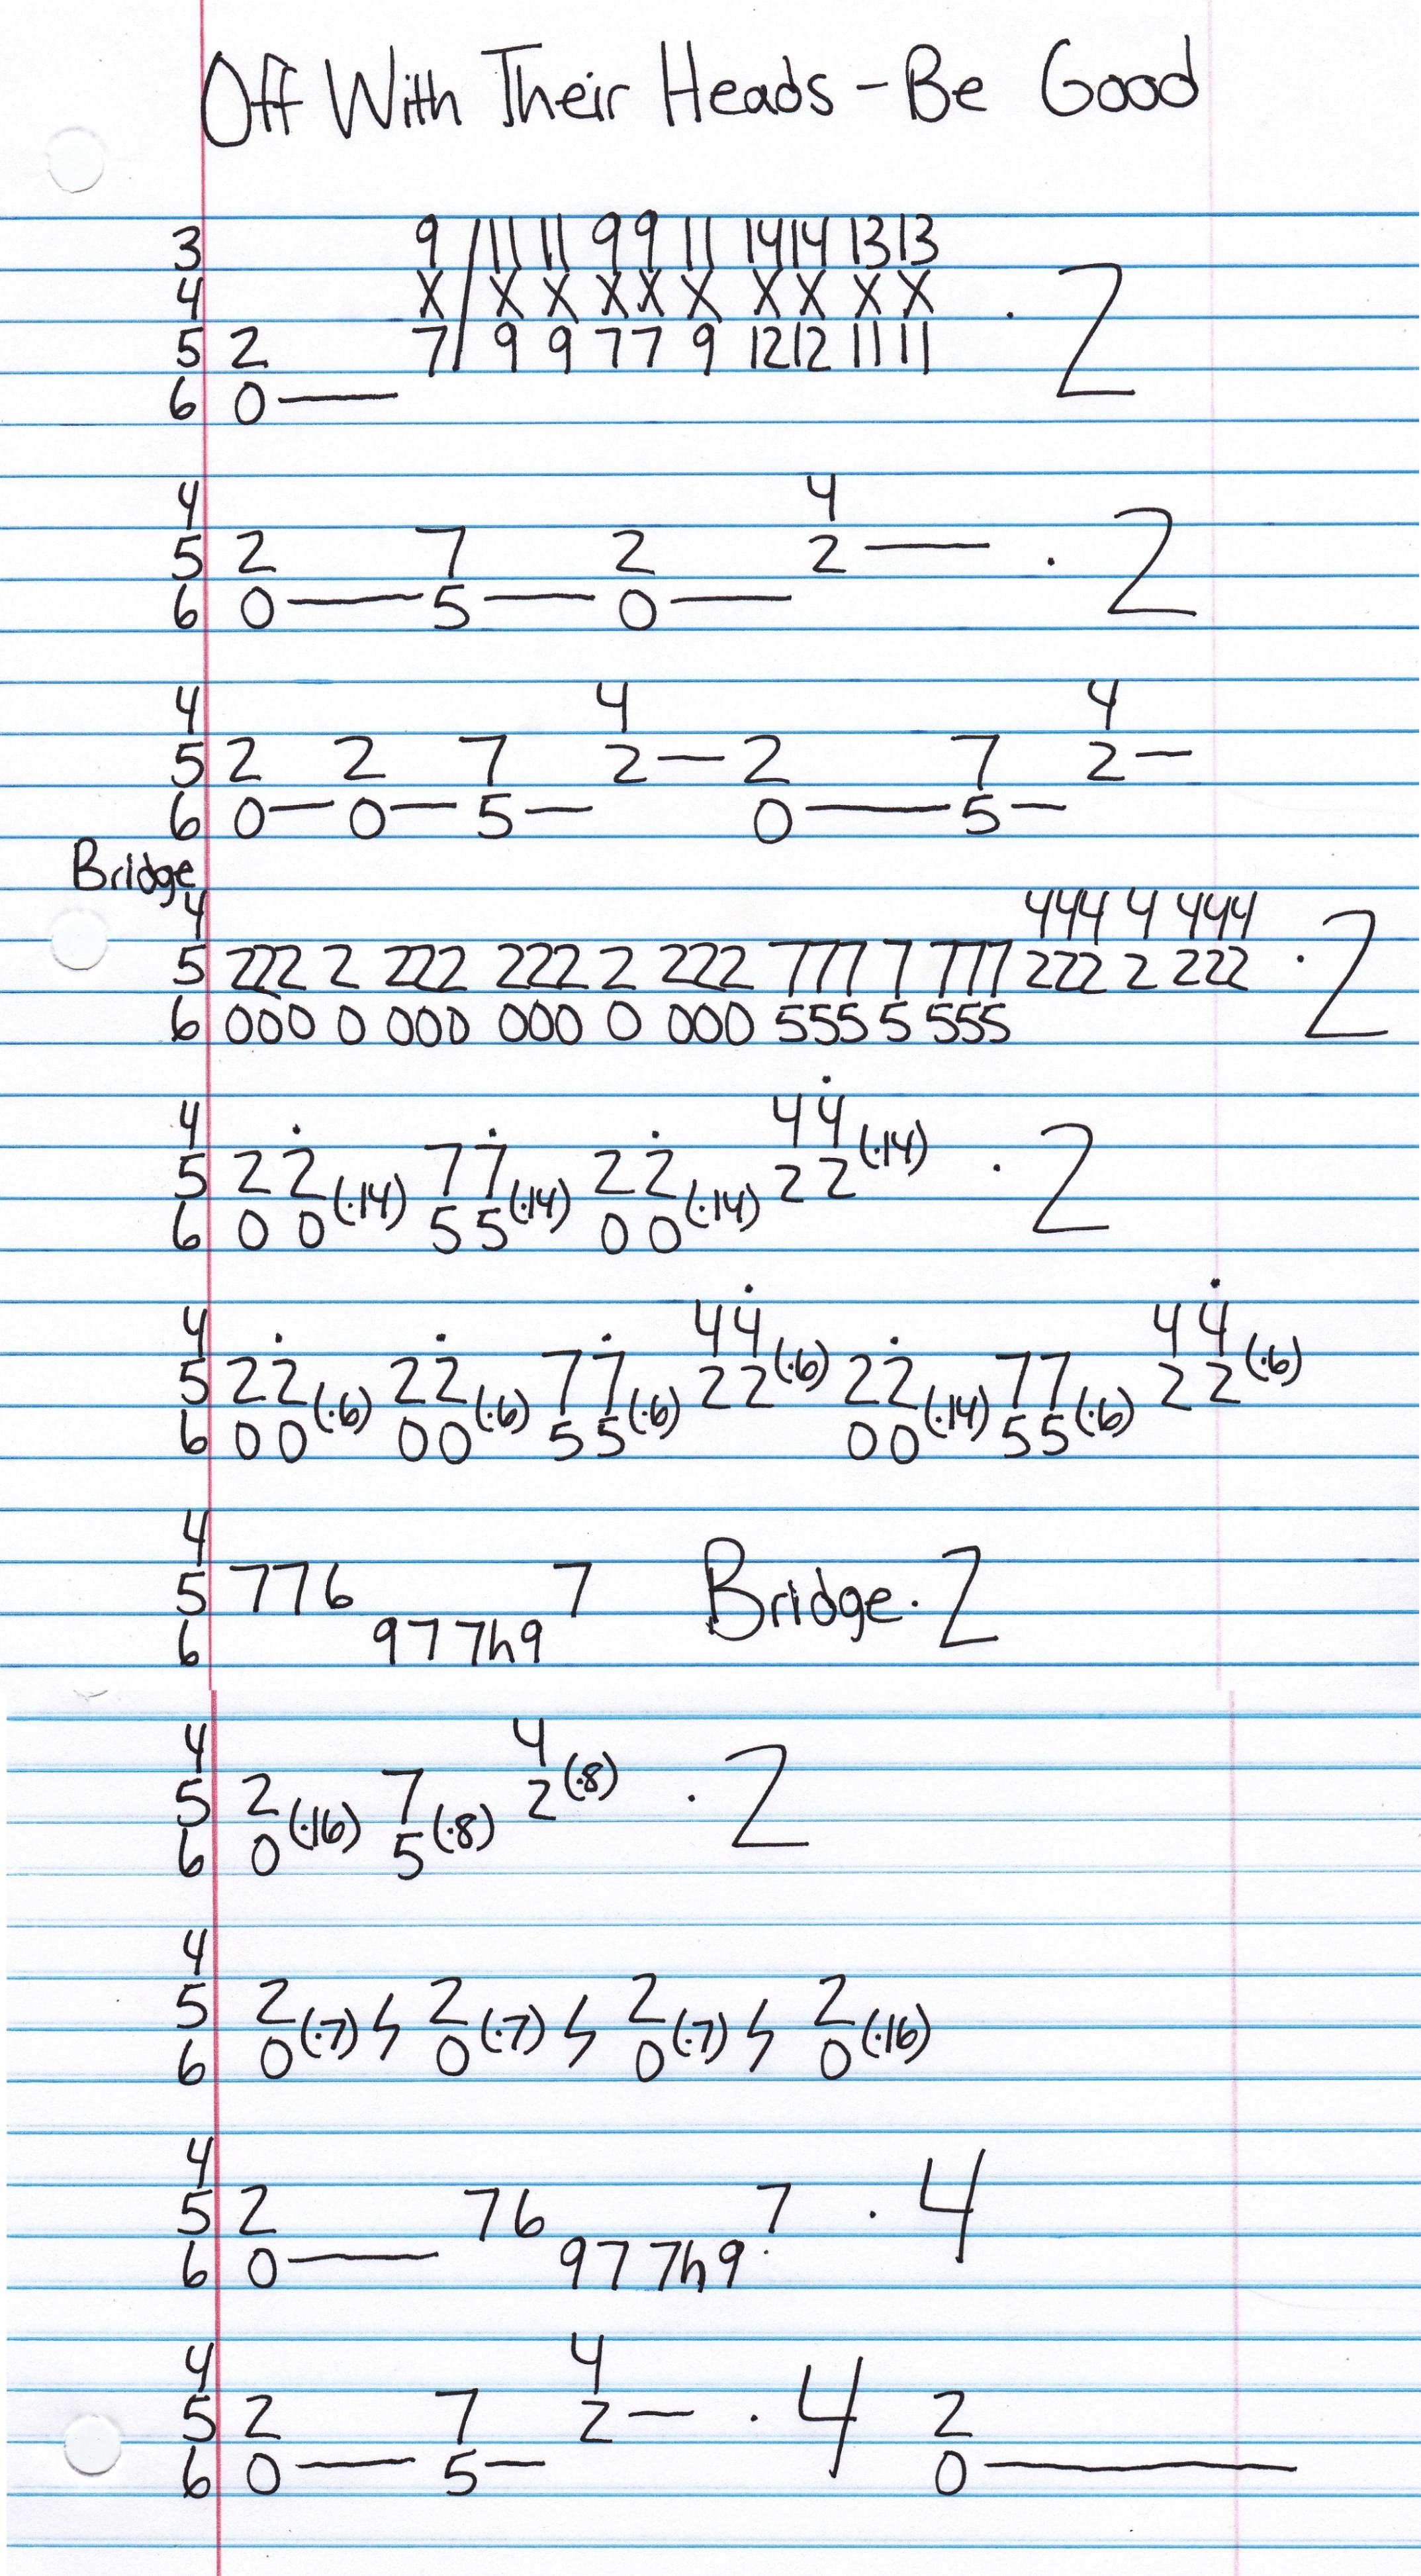 Off With Their Heads - Be Good
3 9 / 11 11 9 9 11 14 14 13 13
4 X / X X X X X X X X X · 2
5 2 7 / 9 9 7 7 9 12 12 11 11
6 0 —
4 4
5 2 7 2 2 — · 2
6 0 — 5 — 0 —
4 4 4
5 2 2 7 2 — 2 7 2 —
6 0 — 0 — 5 — 0 — 5 —
Bridge
4 444 4 444
5 222 2 222 222 2 222 777 7 777 222 2 222 · 2
6 000 0 000 000 0 000 555 5 555
4 4 4̇ (·14)
5 2 2̇ (·14) 7 7̇ (·14) 2 2̇ (·14) 2 2 · 2
6 0 0 5 5 0 0
4 4 4̇ (·6) 4 4̇ (·6)
5 2 2̇ (·6) 2 2̇ (·6) 7 7̇ (·6) 2 2 2 2̇ (·14) 7 7 (·6) 2 2
6 0 0 0 0 5 5 0 0 5 5
4
5 7 7 6 7 Bridge · 2
6 9 7 7h9
4 4
5 2 (·16) 7 (·8) 2 (·8) · 2
6 0 5
4
5 2 2 2 2
6 0 (·7) ϟ 0 (·7) ϟ 0 (·7) ϟ 0 (·16)
4
5 2 7 6 7 · 4
6 0 — 9 7 7h9
4 4
5 2 7 2 — · 4 2
6 0 — 5 — 0 —